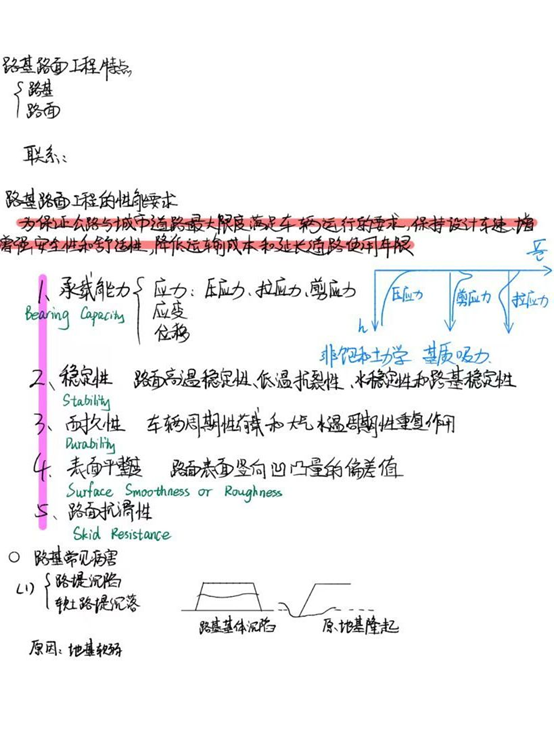 路基路面工程特点
路基
路面
联系:
路基路面工程的性能要求
为保证公路与城市道路最大限度满足车辆运行的要求,保持设计车速,增
增强安全性和舒适性,降低运输成本和延长道路使用年限
1、承载能力 应力:压应力、拉应力、剪应力
Bearing Capacity
应变
位移
压应力 剪应力 拉应力
h
非饱和土力学 基质吸力
2、稳定性 路面高温稳定性、低温抗裂性、水稳定性和路基稳定性
Stability
3、耐久性 车辆周期性荷载和大气水温周期性重复作用
Durability
4、表面平整度 路面表面竖向凹凸量的偏差值
Surface Smoothness or Roughness
5、路面抗滑性
Skid Resistance
路基常见病害
(1) 路堤沉陷
软土路堤沉落
路基基体沉陷 原地基隆起
原因:地基软弱